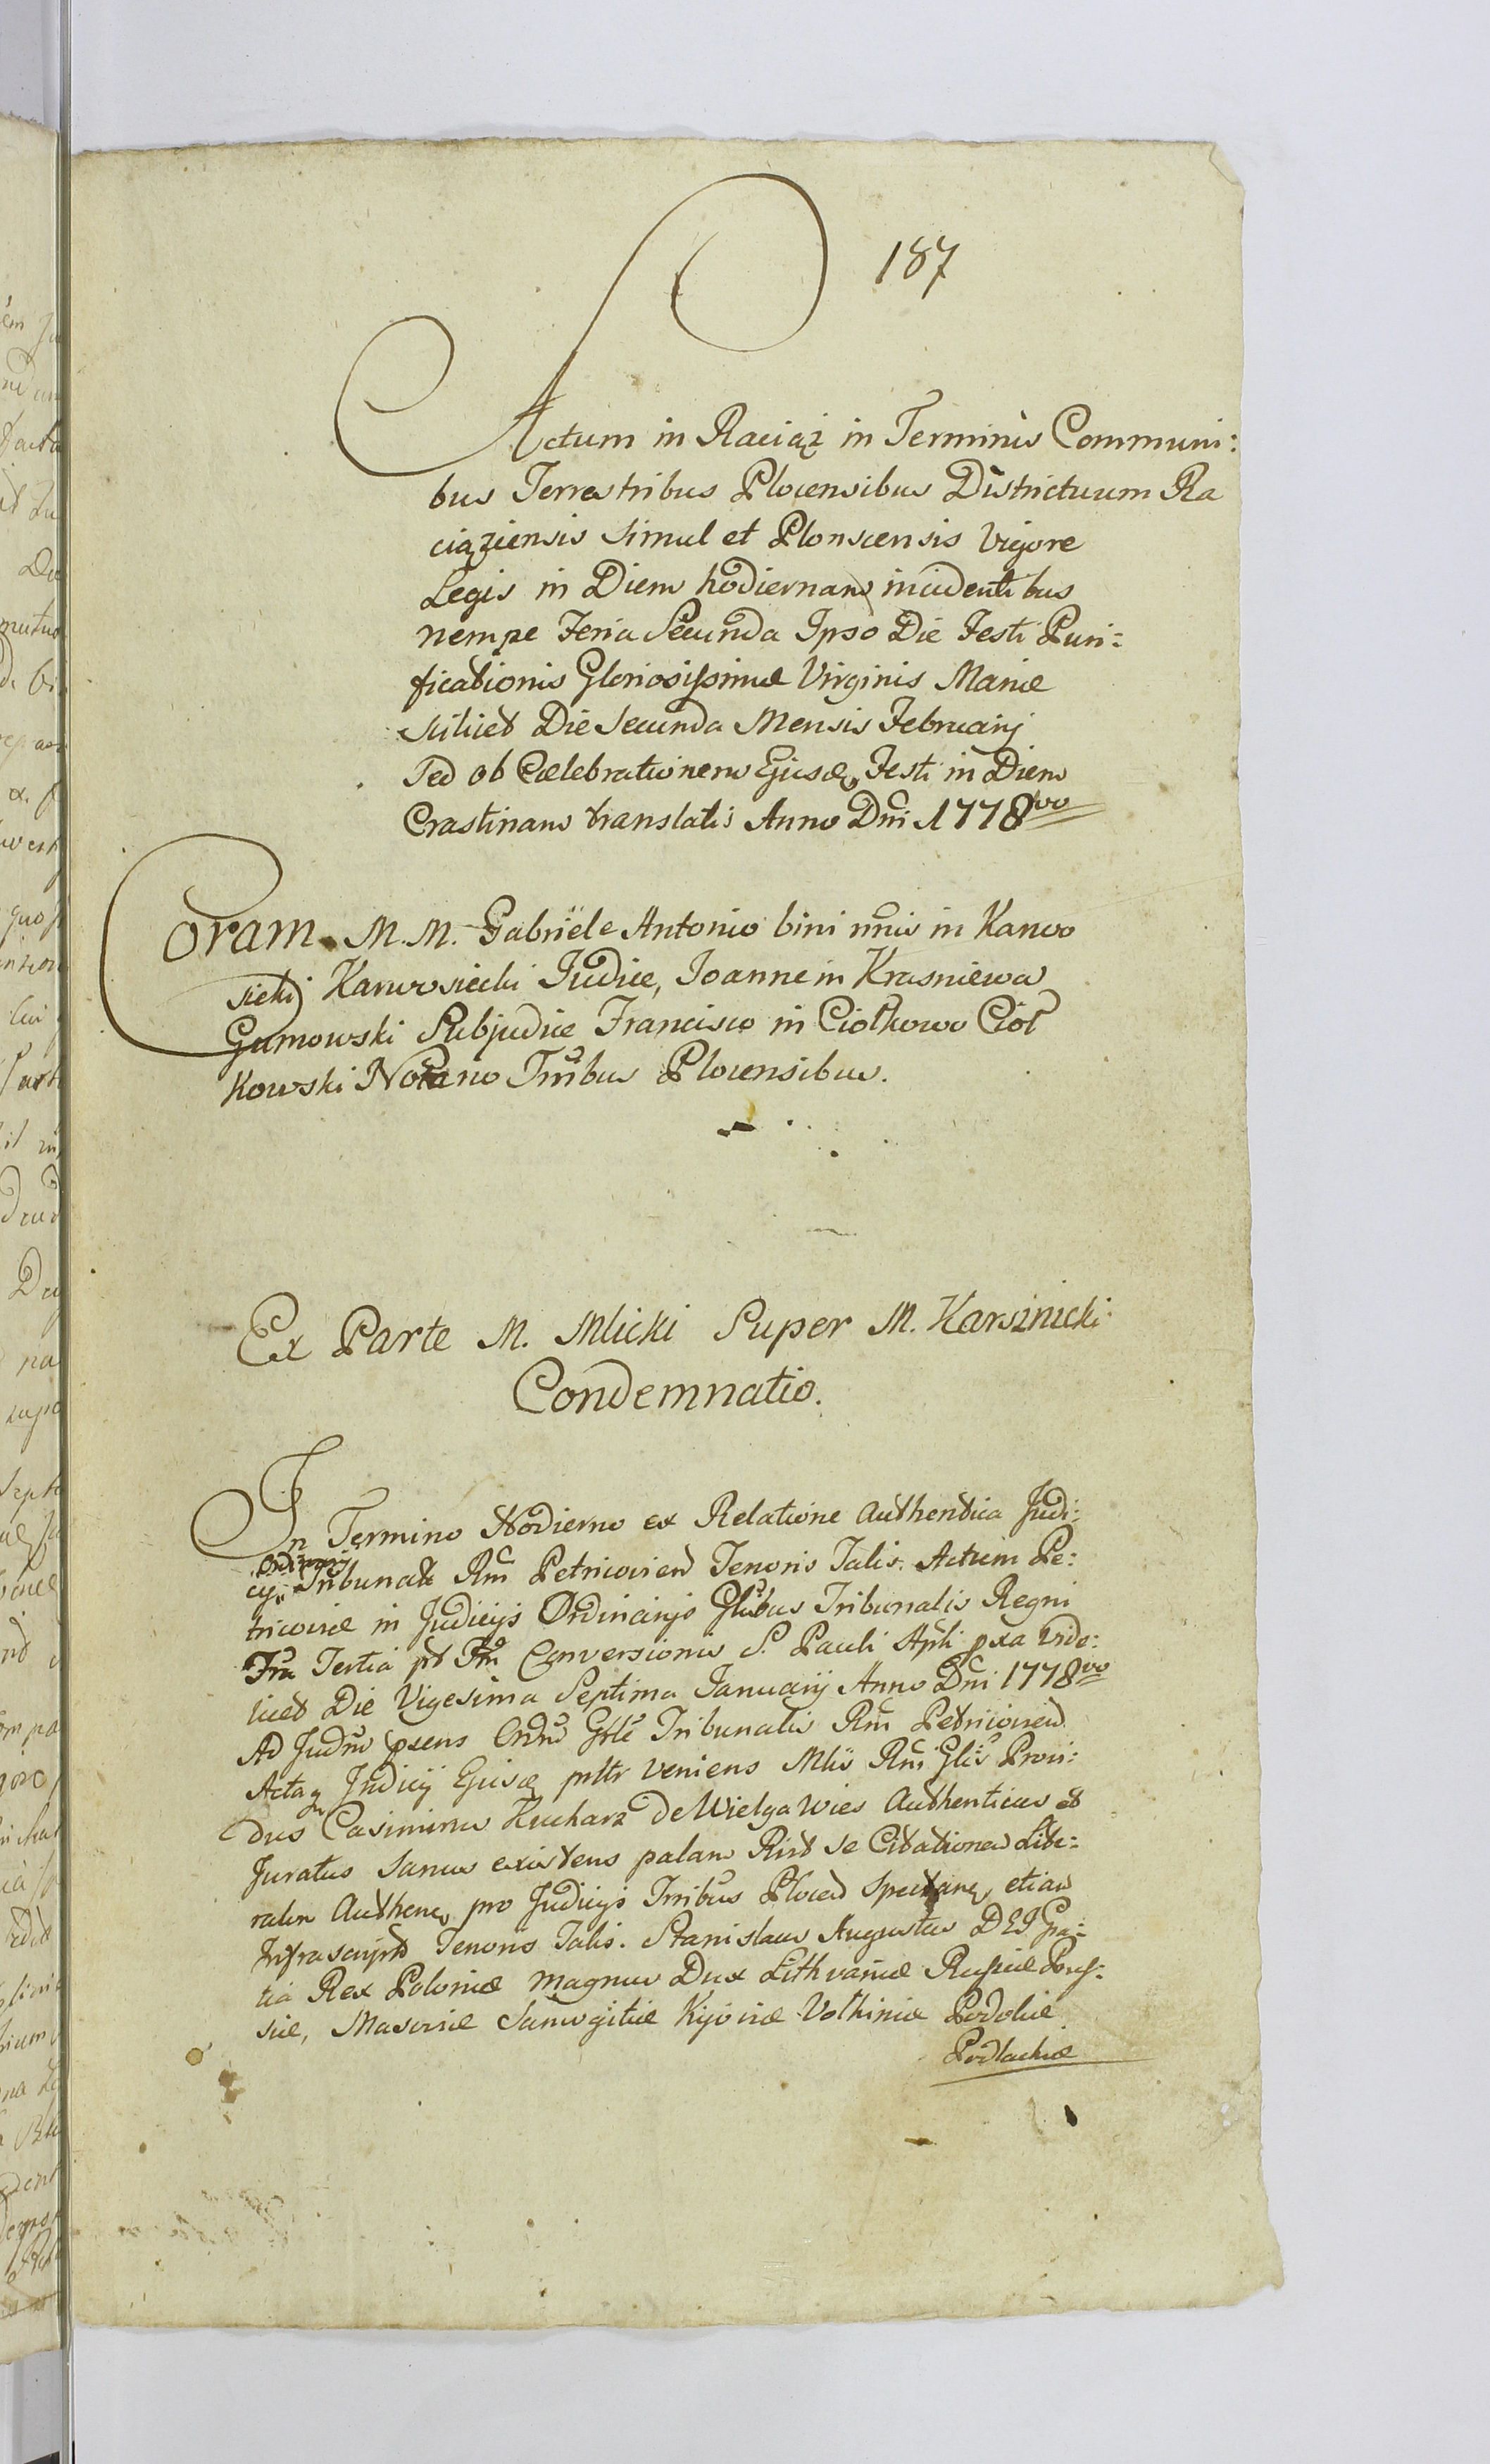 187
Actum in Raciąż in Terminis Communi:
bus Terrestribus Plocensibus Districtuum Ra
ciążiensis simul et Plonscensis Vigore
Legis in Diem hodiernam incidentibus
nempe Feria Secunda Ipso Die Festi Puri:
ficationis Gloriosissimæ Virginis Mariæ
scilicet Die Secunda Mensis Februarij
Sed ob Cælebrationem Ejusd. Festi in Diem
Crastinam translatis Anno Dni 1778vo
Coram M. M. Gabriële Antonio bini nnis in Karwo
sieki Karwosiecki Judice, Joanne in Krasniewa
Gumowski Subjudice Francisco in Ciołkowo Cioł
kowski Notario Trribus Plocensibus.
Ex Parte M. Mlicki Super M. Karsznicki
Condemnatio.
In Termino Hodierno ex Relatione Authentica Judi:
Ordinarij
cij Tribunal Rni Petricovien Tenoris Talis. Actum Pe:
tricoviæ in Judicijs Ordinarijs Glibus Tribunalis Regni
Fria Tertia pt Ftm Conversionis S. Pauli Apli pxa Vide:
licet Die Vigesima Septima Januarij Anno Dni 1778vo
Ad Judm præns Ordm Gnle Tribunalis Rni Petricovien
Actaq Judicij Ejusd pnltr Veniens Mlis Rni Glis Provi:
dus Casimirus Kucharz de Wielga Wies Authenticus et
Juratus Sanus existens palam Rict se Citationem Lite:
ralem Authenc. pro Judicijs Trribus Plocen Spectanq etiam
Infrascript Tenoris Talis. Stanislaus Augustus DEI Gra:
tia Rex Poloniæ Magnus Dux Lithvaniæ Russiæ Prus:
siæ, Masoviæ Samogitiæ Kijoviæ Volhiniæ Podoliæ
Podlachiæ